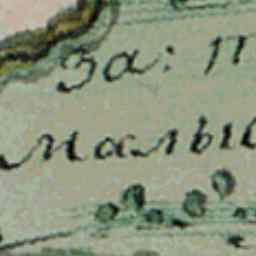 За: П
малыс